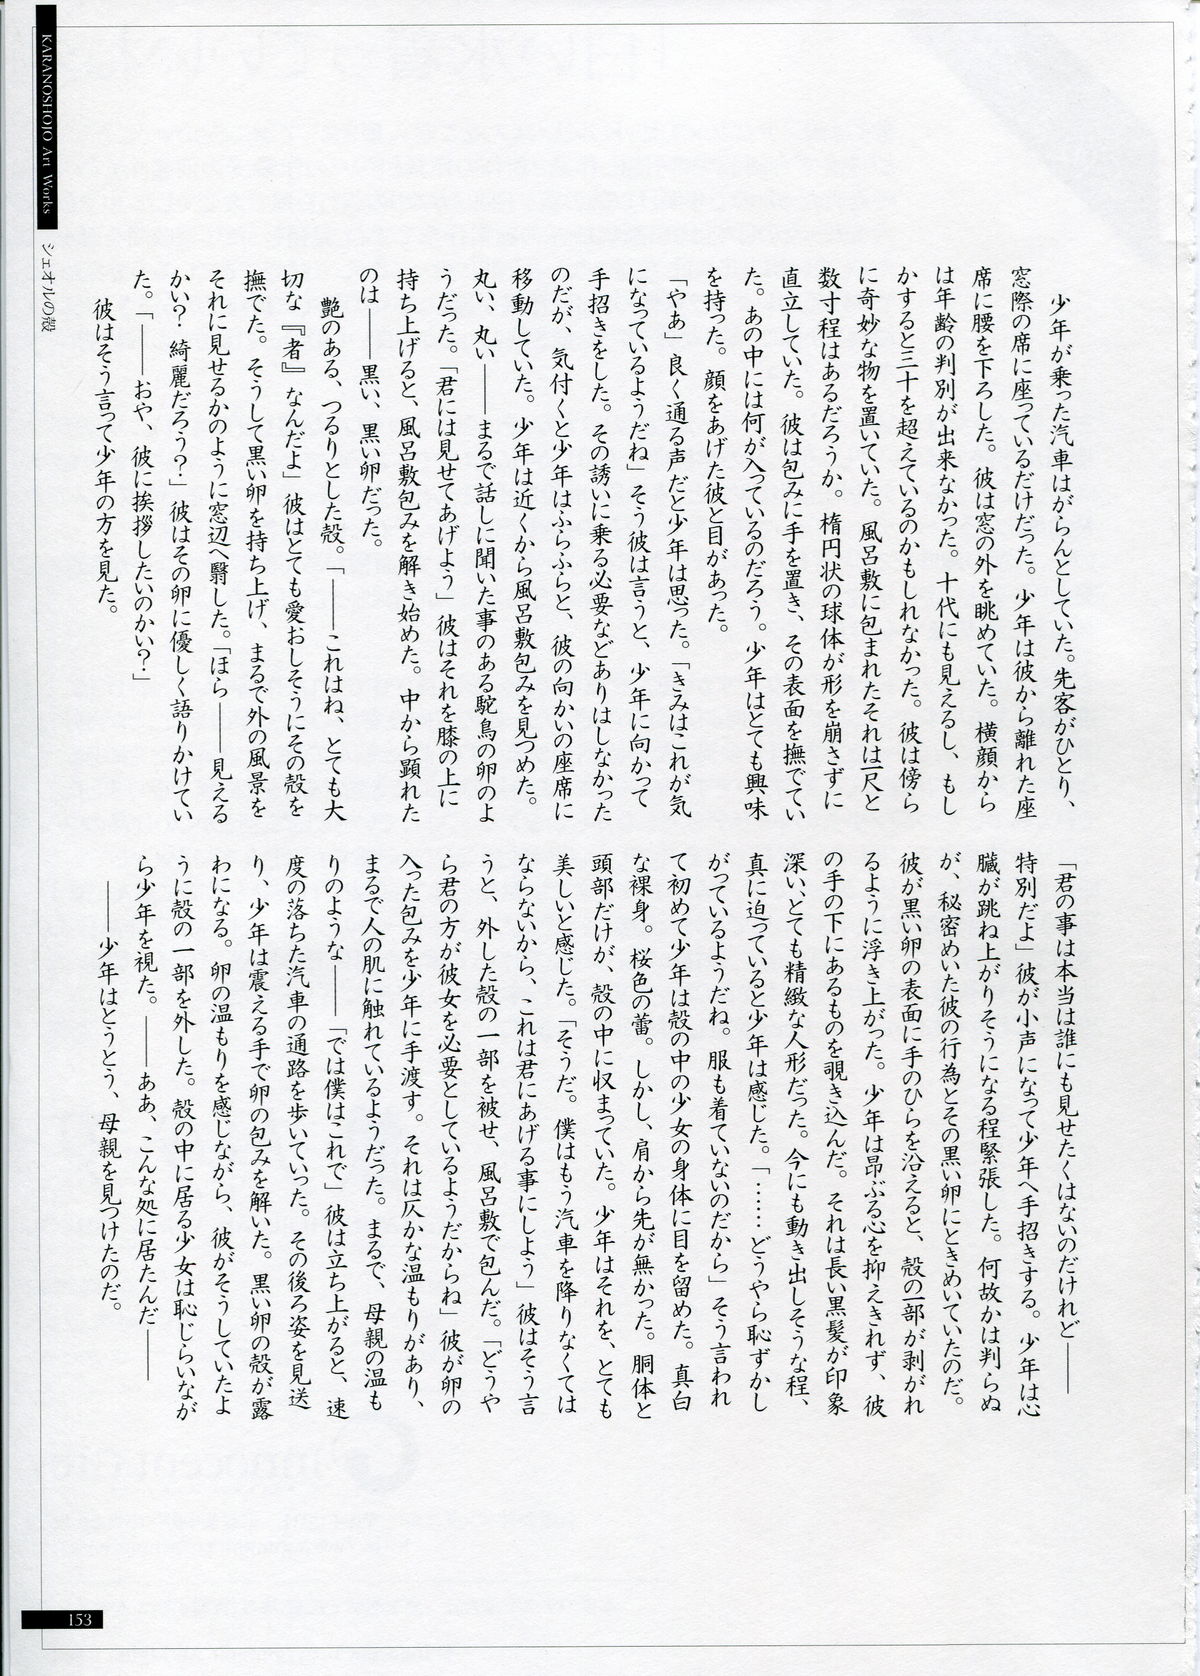 KARANOSHOJO Art Works
シェオルの殻
少年が乗った汽車はがらんとしていた。先客がひとり、
窓際の席に座っているだけだった。少年は彼から離れた座
席に腰を下ろした。彼は窓の外を眺めていた。横顔から
は年齢の判別が出来なかった。十代にも見えるし、もし
かすると三十を超えているのかもしれなかった。彼は傍ら
に奇妙な物を置いていた。風呂敷に包まれたそれは一尺と
数寸程はあるだろうか。楕円状の球体が形を崩さずに
直立していた。彼は包みに手を置き、その表面を撫でてい
た。あの中には何が入っているのだろう。少年はとても興味
を持った。顔をあげた彼と目があった。
「やぁ」良く通る声だと少年は思った。「きみはこれが気
になっているようだね」そう彼は言うと、少年に向かって
手招きをした。その誘いに乗る必要などありはしなかった
のだが、気付くと少年はふらふらと、彼の向かいの座席に
移動していた。少年は近くから風呂敷包みを見つめた。
丸い、丸い――まるで話しに聞いた事のある駝鳥の卵のよ
うだった。「君には見せてあげよう」彼はそれを膝の上に
持ち上げると、風呂敷包みを解き始めた。中から顕れた
のは――黒い、黒い卵だった。
艶のある、つるりとした殻。「――これはね、とても大
切な『者』なんだよ」彼はとても愛おしそうにその殻を
撫でた。そうして黒い卵を持ち上げ、まるで外の風景を
それに見せるかのように窓辺へ翳した。「ほら――見える
かい？綺麗だろう？」彼はその卵に優しく語りかけてい
た。「――おや、彼に挨拶したいのかい？」
彼はそう言って少年の方を見た。
「君の事は本当は誰にも見せたくはないのだけれど――
特別だよ」彼が小声になって少年へ手招きする。少年は心
臓が跳ね上がりそうになる程緊張した。何故かは判らぬ
が、秘密めいた彼の行為とその黒い卵にときめいていたのだ。
彼が黒い卵の表面に手のひらを沿えると、殻の一部が剥がれ
るように浮き上がった。少年は昂ぶる心を抑えきれず、彼
の手の下にあるものを覗き込んだ。それは長い黒髪が印象
深い、とても精緻な人形だった。今にも動き出しそうな程、
真に迫っていると少年は感じた。「……どうやら恥ずかし
がっているようだね。服も着ていないのだから」そう言われ
て初めて少年は殻の中の少女の身体に目を留めた。真白
な裸身。桜色の蕾。しかし、肩から先が無かった。胴体と
頭部だけが、殻の中に収まっていた。少年はそれを、とても
美しいと感じた。「そうだ。僕はもう汽車を降りなくては
ならないから、これは君にあげる事にしよう」彼はそう言
うと、外した殻の一部を被せ、風呂敷で包んだ。「どうや
ら君の方が彼女を必要としているようだからね」彼が卵の
入った包みを少年に手渡す。それは仄かな温もりがあり、
まるで人の肌に触れているようだった。まるで、母親の温も
りのような――「では僕はこれで」彼は立ち上がると、速
度の落ちた汽車の通路を歩いていった。その後ろ姿を見送
り、少年は震える手で卵の包みを解いた。黒い卵の殻が露
わになる。卵の温もりを感じながら、彼がそうしていたよ
うに殻の一部を外した。殻の中に居る少女は恥じらいなが
ら少年を視た。――ああ、こんな処に居たんだ――
――少年はとうとう、母親を見つけたのだ。
153